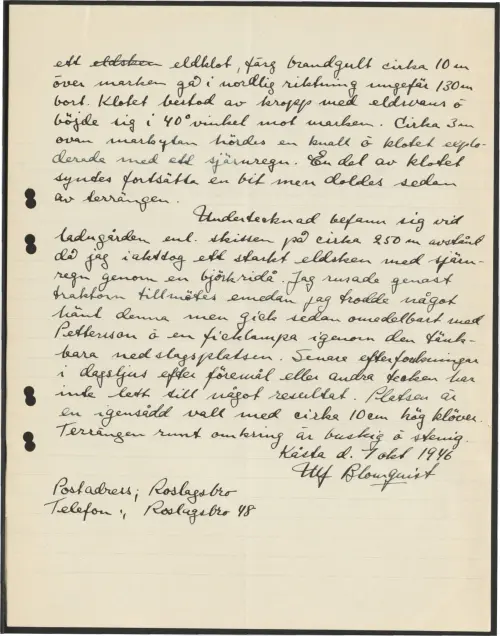 ett eldsken eldklot, färg brandgult cirka 10 m
över marken gå i nordlig riktning ungefär 130 m
bort. Klotet bestod av kropp med eldsvans ó
böjde sig i 40° vinkel mot marken. Cirka 3 m
ovan markytan hördes en knall ó klotet explo-
derade med ett stjärnregn. En del av klotet
syndes fortsätta en bit men doldes sedan
av terrängen.
Undertecknad befann sig vid
ladugården enl. skissen på cirka 250 m avstånd
då jag iakttog ett starkt eldsken med stjärn-
regn genom en björkridå. Jag rusade genast
traktorn tillmötes emedan jag trodde något
hänt denna men gick sedan omedelbart med
Pettersson ó en ficklampa igenom den tänk-
bara nedslagsplatsen. Senare efterforskningar
i dagsljus efter föremål eller andra tecken har
inte lett till något resultat. Platsen är
en igensådd vall med cirka 10 cm hög klöver.
Terrängen runt omkring är buskig ó stenig.
Kåsta d. 7 okt 1946
Ulf Blomquist
Postadress; Roslagsbro
Telefon:, Roslagsbro 48